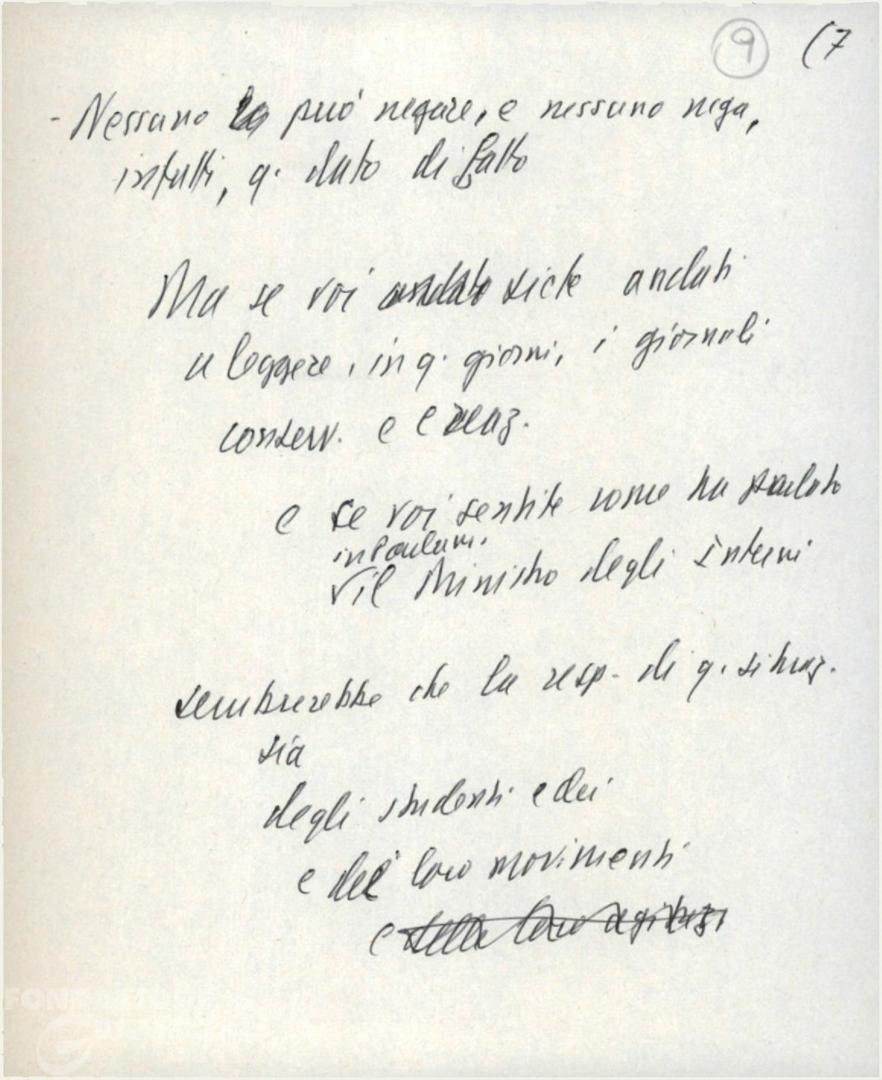 9 (7
- Nessuno lo può negare, e nessuno nega,
infatti, q. dato di fatto
Ma se voi andate siete andati
a leggere, in q. giorni, i giornali
conserv. e reaz.
e se voi sentite come ha parlato
in Parlam.
il Ministro degli Interni
sembrerebbe che la resp. di q. situaz.
sia
degli studenti e dei
e dei loro movimenti
e della loro